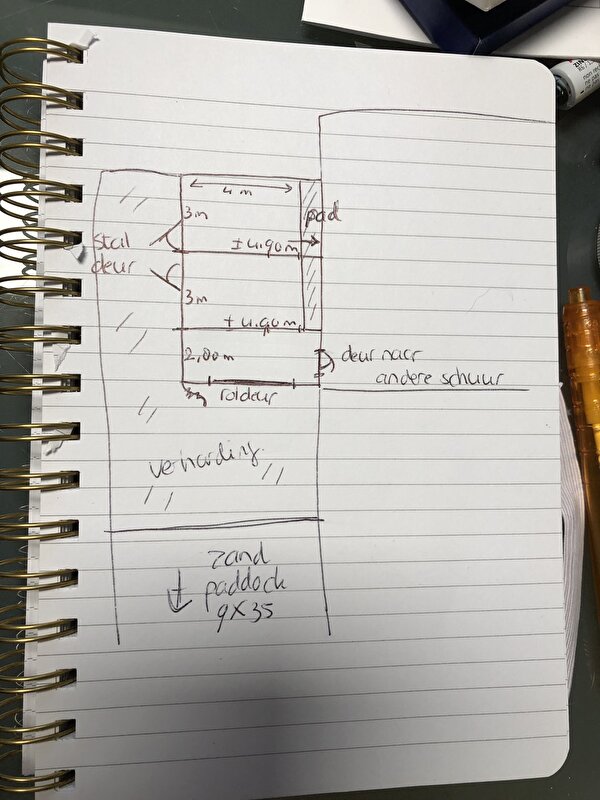 4 m
3m
pad
± 4.90m
stal
deur
3m
± 4.90m
2,00m
deur naar
andere schuur
roldeur
verharding
zand
paddock
9x35